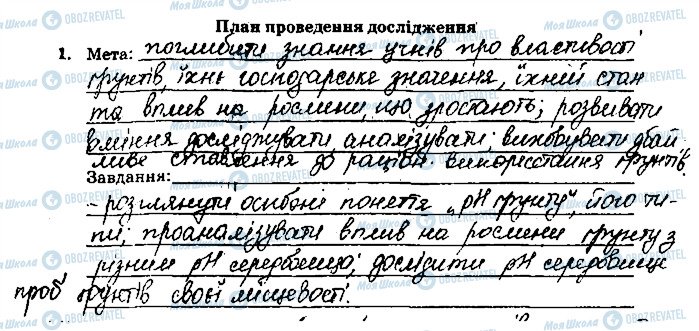 План проведення дослідження
1. Мета: поглибити знання учнів про властивості
ґрунтів, їхнє господарське значення, їхній стан
та вплив на рослини, що зростають; розвивати
вміння досліджувати, аналізувати; виховувати дбай
ливе ставлення до раціон. використання ґрунтів.
Завдання:
- розглянути основні поняття „pH ґрунту", його ти-
пи; проаналізувати вплив на рослини ґрунту з
різним pH середовищ; дослідити pH середовище
проб ґрунтів своєї місцевості.